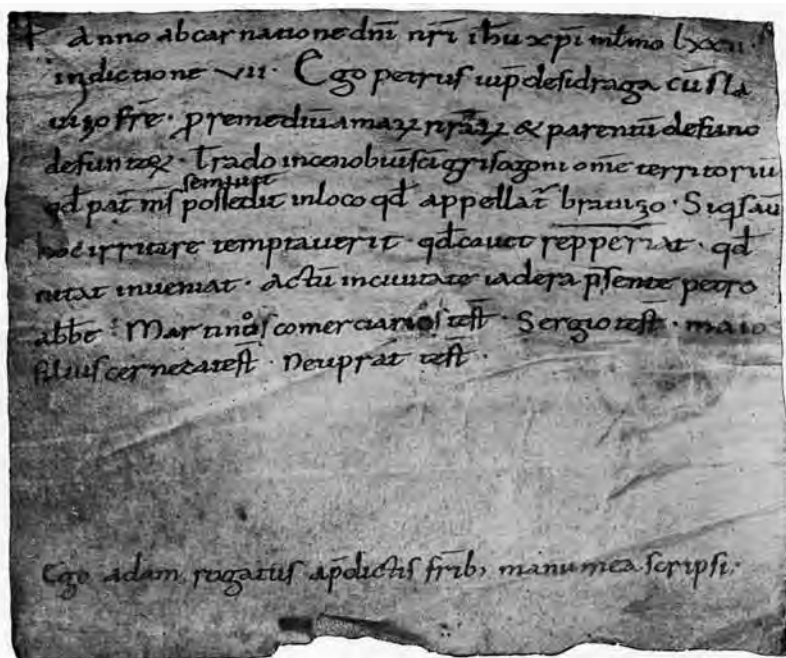 † Anno abcarnatione dnī nrī ihū xpī mlmo lxxii
indictione vii · Ego petrus desidraga cū sla
vizo frē · p remediū nrarꝝ & parentū defunc
defunctoꝝ · trado incenobiū sci grisogoni om̄e territoriū
qd pat ms semiuit possedit inloco qd appellat̄ bravizo · Siqs aū
hoc irritare temptaverit · qd cavet repperiat · qd
vitat inveniat · Actū incivitate iadera p̄sente petro
abbe · Martinos comerciarios test̄ · Sergio test̄ · maio
filius cerneca test̄ · Neuprat test̄ ·
Ego adam rogatus ap̄dictis frib; manu mea scripsi ·